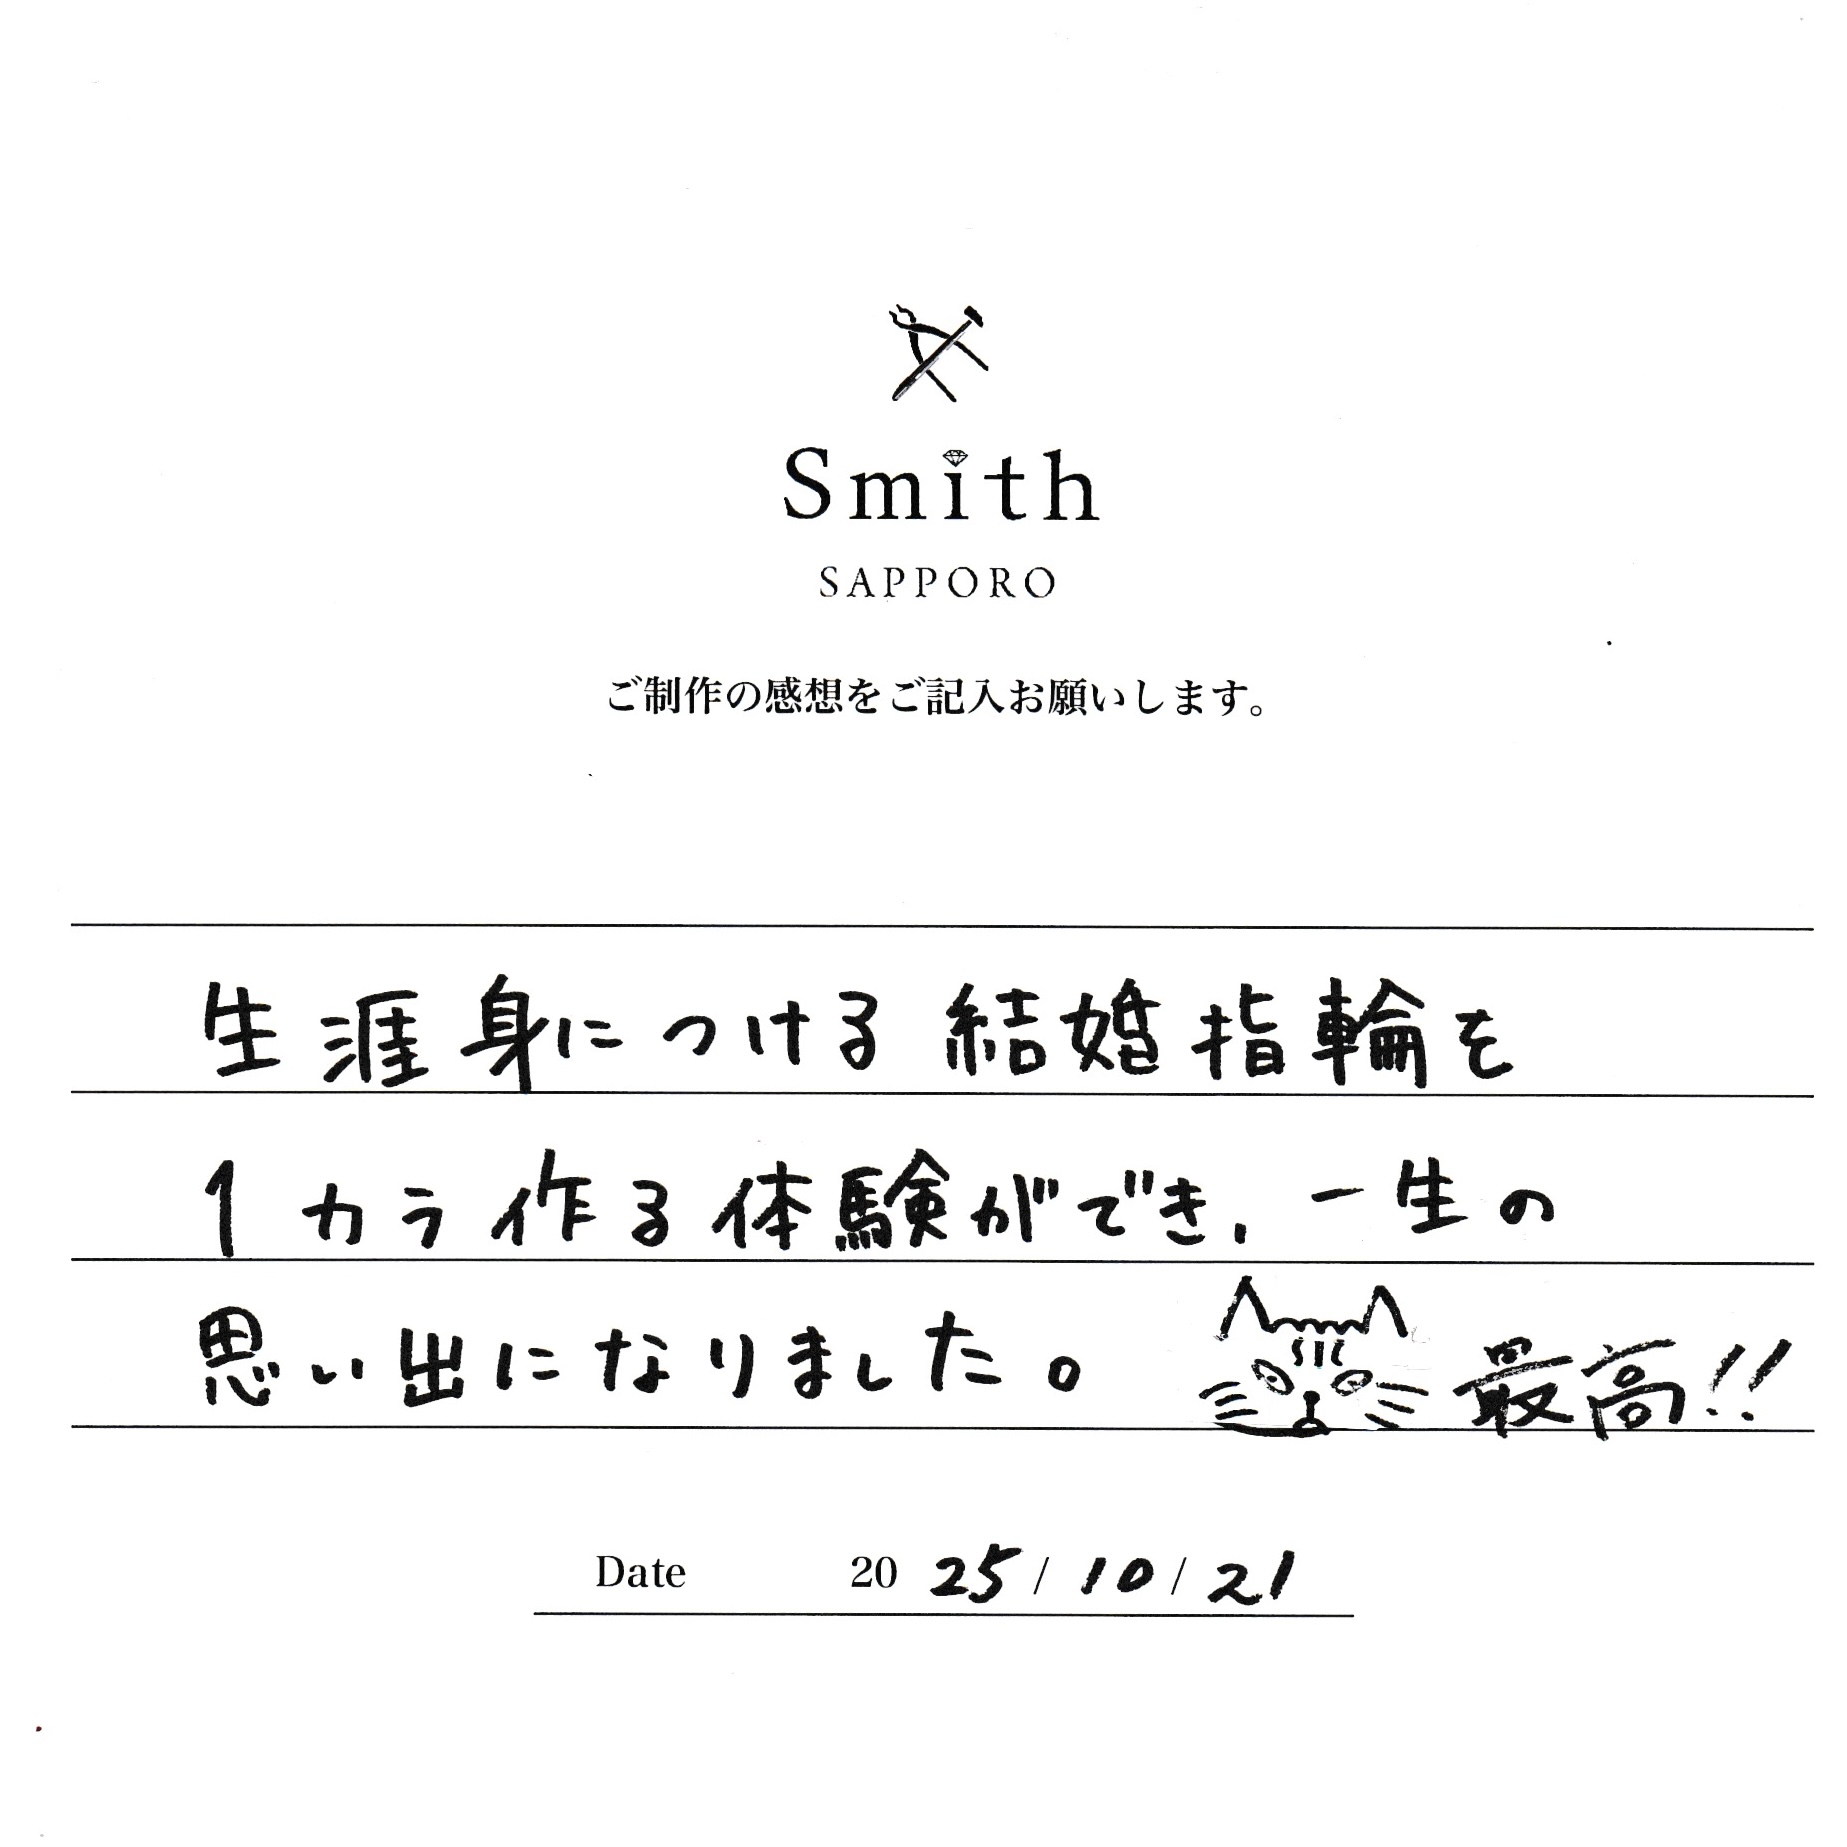 Smith
SAPPORO
ご制作の感想をご記入お願いします。
生涯身につける結婚指輪を
1カラ作る体験ができ、一生の
思い出になりました。 最高!!
Date 2025/10/21